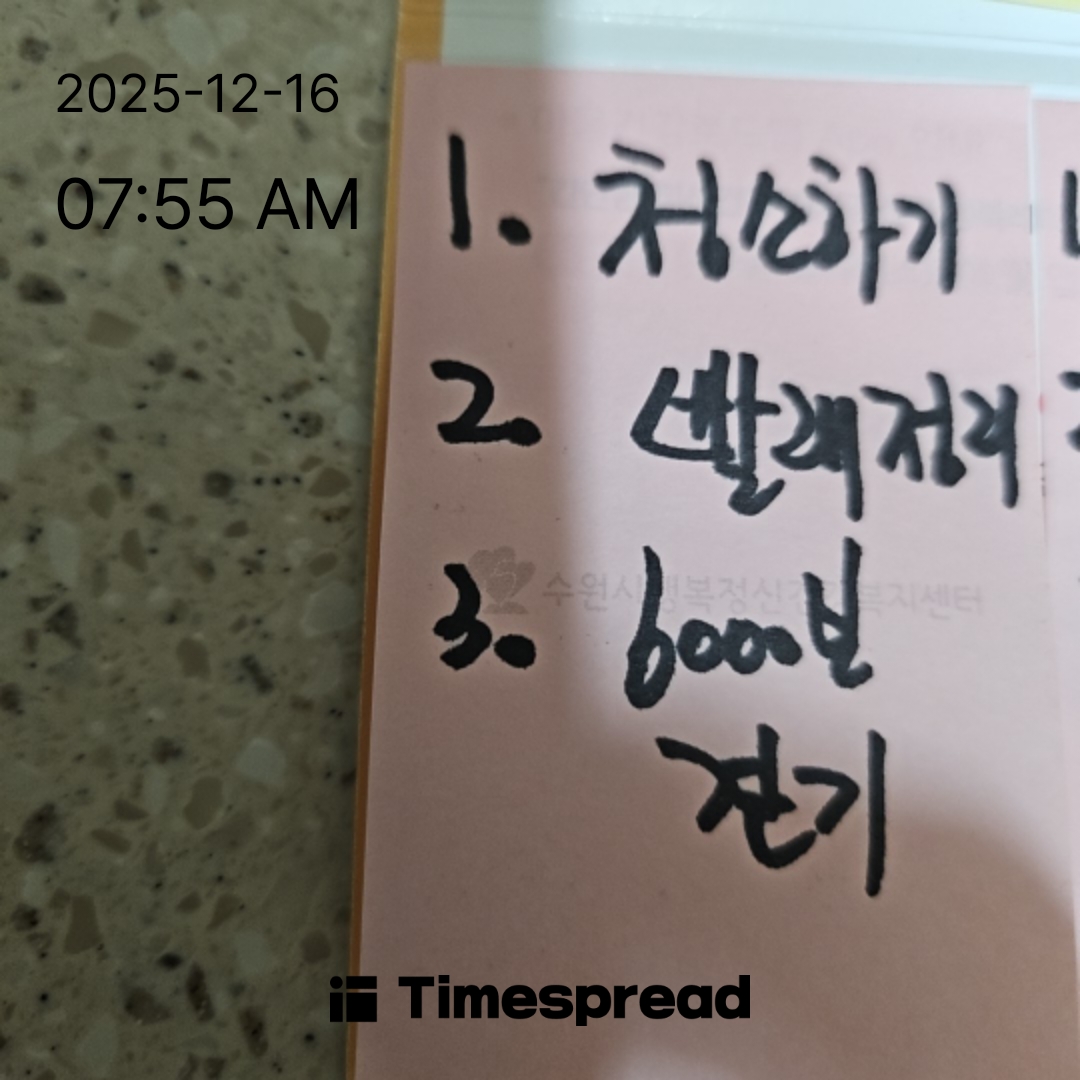 2025-12-16
07:55 AM
1. 청소하기
2. 빨래정리
수원시행복정신건강복지센터
3. 6000보
걷기
Timespread